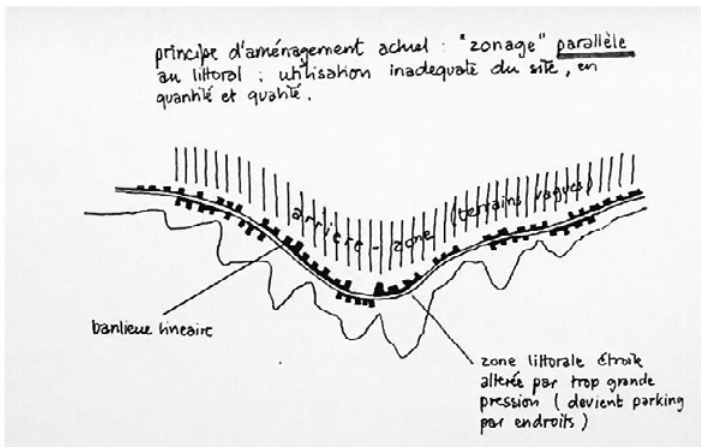 principe d'aménagement actuel : "zonage" parallèle
au littoral : utilisation inadequate du site, en
quantité et qualité.
arrière - zone (terrains vagues)
banlieue linéaire
zone littorale étroite
altérée par trop grande
pression (devient parking
par endroits)